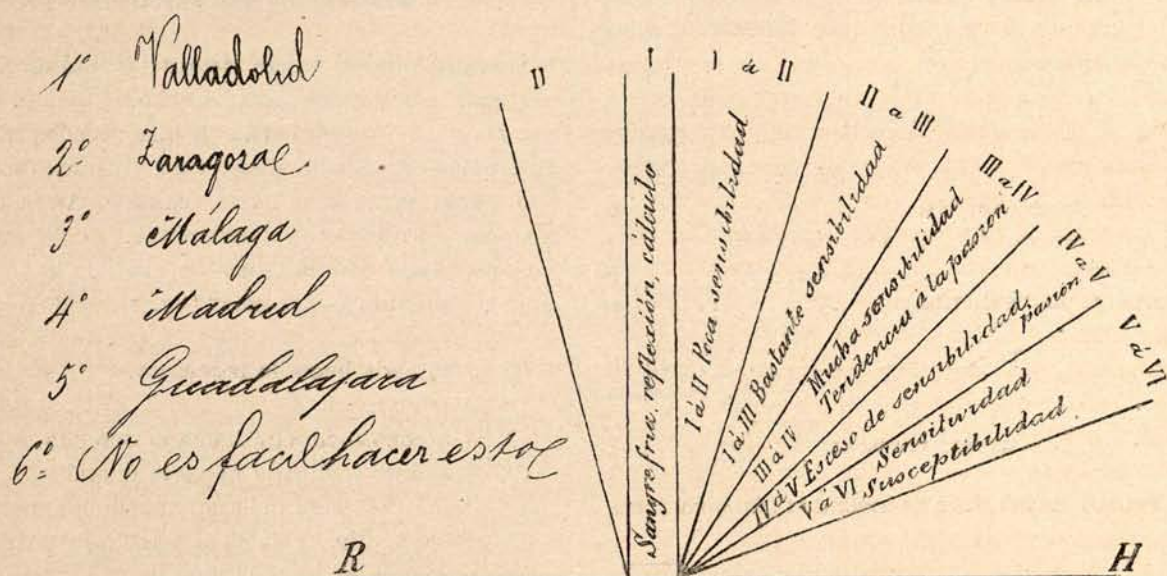 1º Valladolid
2º Zaragoza
3º Málaga
4º Madrid
5º Guadalajara
6º No es facil hacer esto
II
I
I á II
II a III
III a IV
IV a V
V á VI
Sangre fria, reflexión, cálculo
I á II Poca sensibilidad
I á III Bastante sensibilidad
III a IV Mucha sensibilidad
Tendencia á la pasión
IV á V Esceso de sensibilidad,
pasión
V á VI Sensitividad
Susceptibilidad
R
H